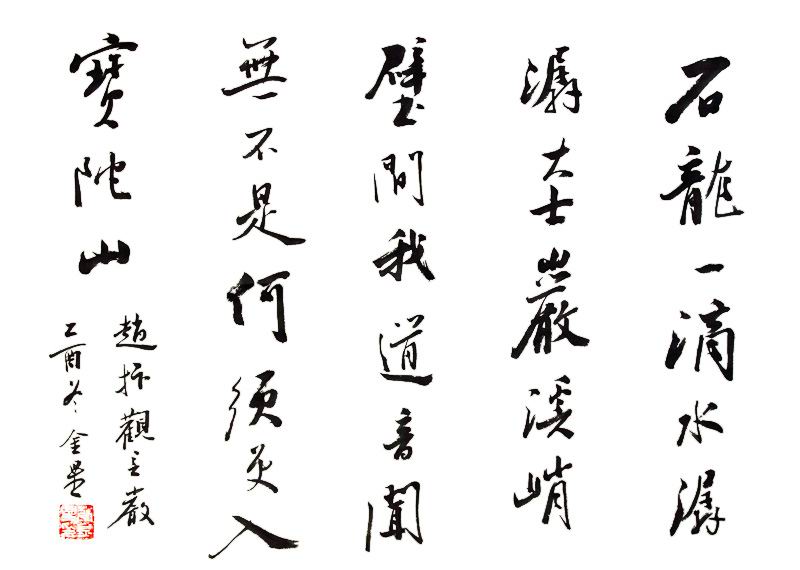 石龍一滴水潺
潺大士巖溪峭
壁間我道音聞
無不是何須更入
寶陀山
趙抃觀音巖
乙酉冬金